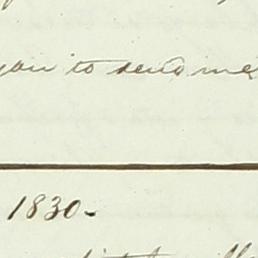 you to send me
1830-